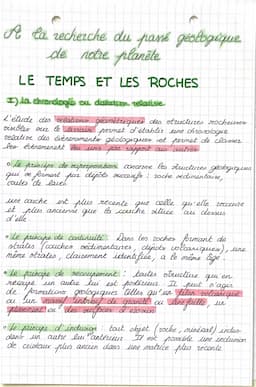 A la recherche du passé géologique
de notre planète
LE TEMPS ET LES ROCHES
I) la chronologie ou datation relative
L'étude des relations géométriques des structures rocheuses
visibles sur le terrain permet d'établir une chronologie
relative des événements géologiques et permet de classer
les événements les uns par rapport aux autres
• le principe de superposition concerne les structures géologiques
qui se forment par dépôts successifs : roche sédimentaire,
coulée de lave
une couche est plus récente que celle qu'elle recouvre
et plus ancienne que la couche située au dessus
d'elle.
• le principe de continuité : Dans les roches formant de
strates (couches sédimentaires, dépôts volcaniques), une
même strate, clairement identifiée, a le même âge.
• le principe de recoupement : toutes structure qui en
recoupe un autre lui est postérieur. Il peut s'agir
de formations géologiques telles qu'un filon volcanique
ou un massif intrusif de granite ou une faille un
plissement ou des surfaces d'érosion
• le principe d'inclusion : tout objet (roche, minéral) inclus
dans un autre lui antérieur. Il est possible une inclusion
de cristaux plus ancien dans une matrice plus récente.